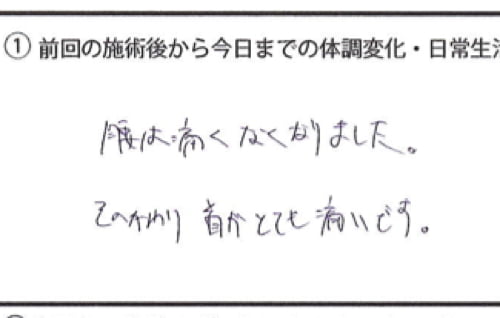 ① 前回の施術後から今日までの体調変化・日常生活
腰は痛くなくなりました。
そのかわり 首がとても痛いです。